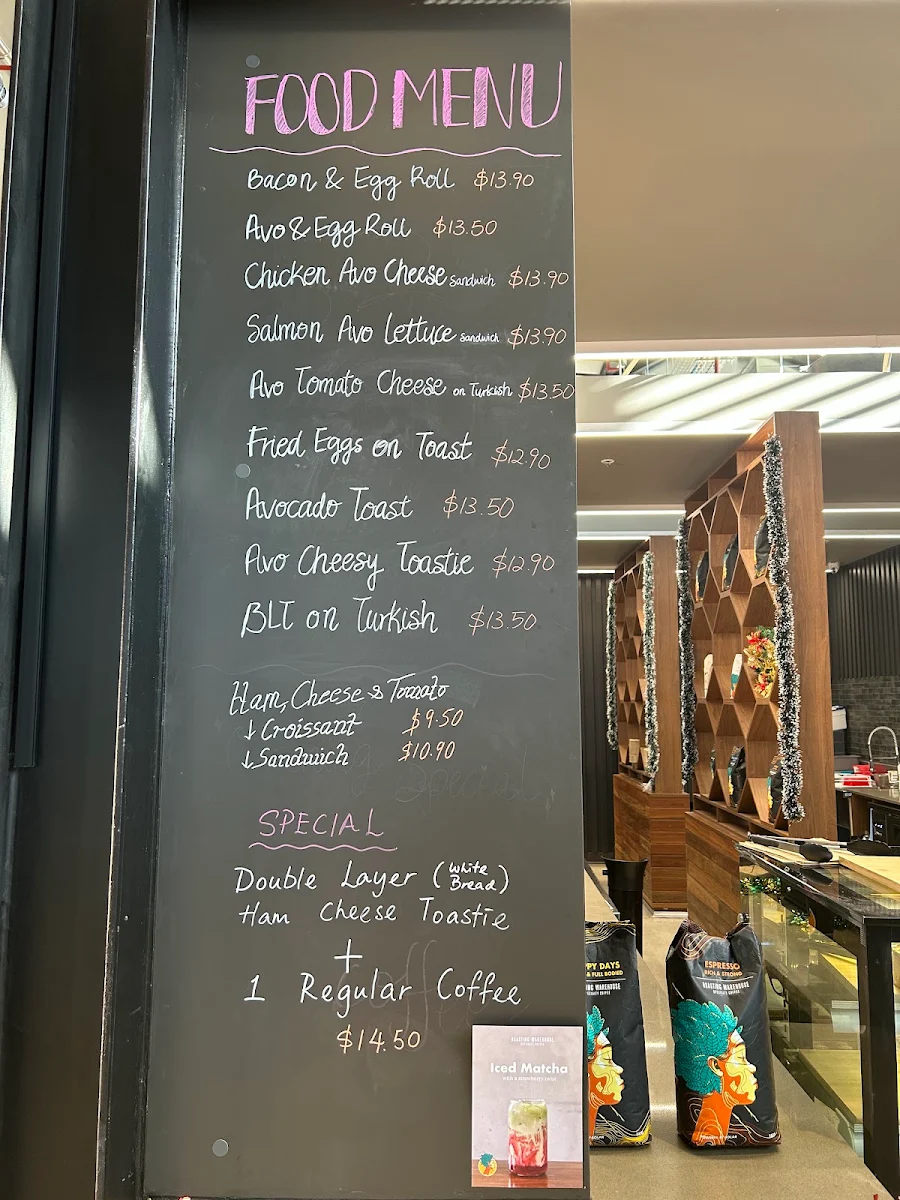 FOOD MENU
Bacon & Egg Roll $13.90
Avo & Egg Roll $13.50
Chicken Avo Cheese Sandwich $13.90
Salmon Avo Lettuce Sandwich $13.90
Avo Tomato Cheese on Turkish $13.50
Fried Eggs on Toast $12.90
Avocado Toast $13.50
Avo Cheesy Toastie $12.90
BLT on Turkish $13.50
Ham, Cheese & Tomato
↓ Croissant $9.50
↓ Sandwich $10.90
SPECIAL
Double Layer (White Bread)
Ham Cheese Toastie
+
1 Regular Coffee
$14.50
ROASTING WAREHOUSE
Iced Matcha
with a strawberry twist
PY DAYS
& FULL BODIED
ING WAREHOUSE
ESPRESSO
RICH & STRONG
ROASTING WAREHOUSE
SPECIALTY COFFEE